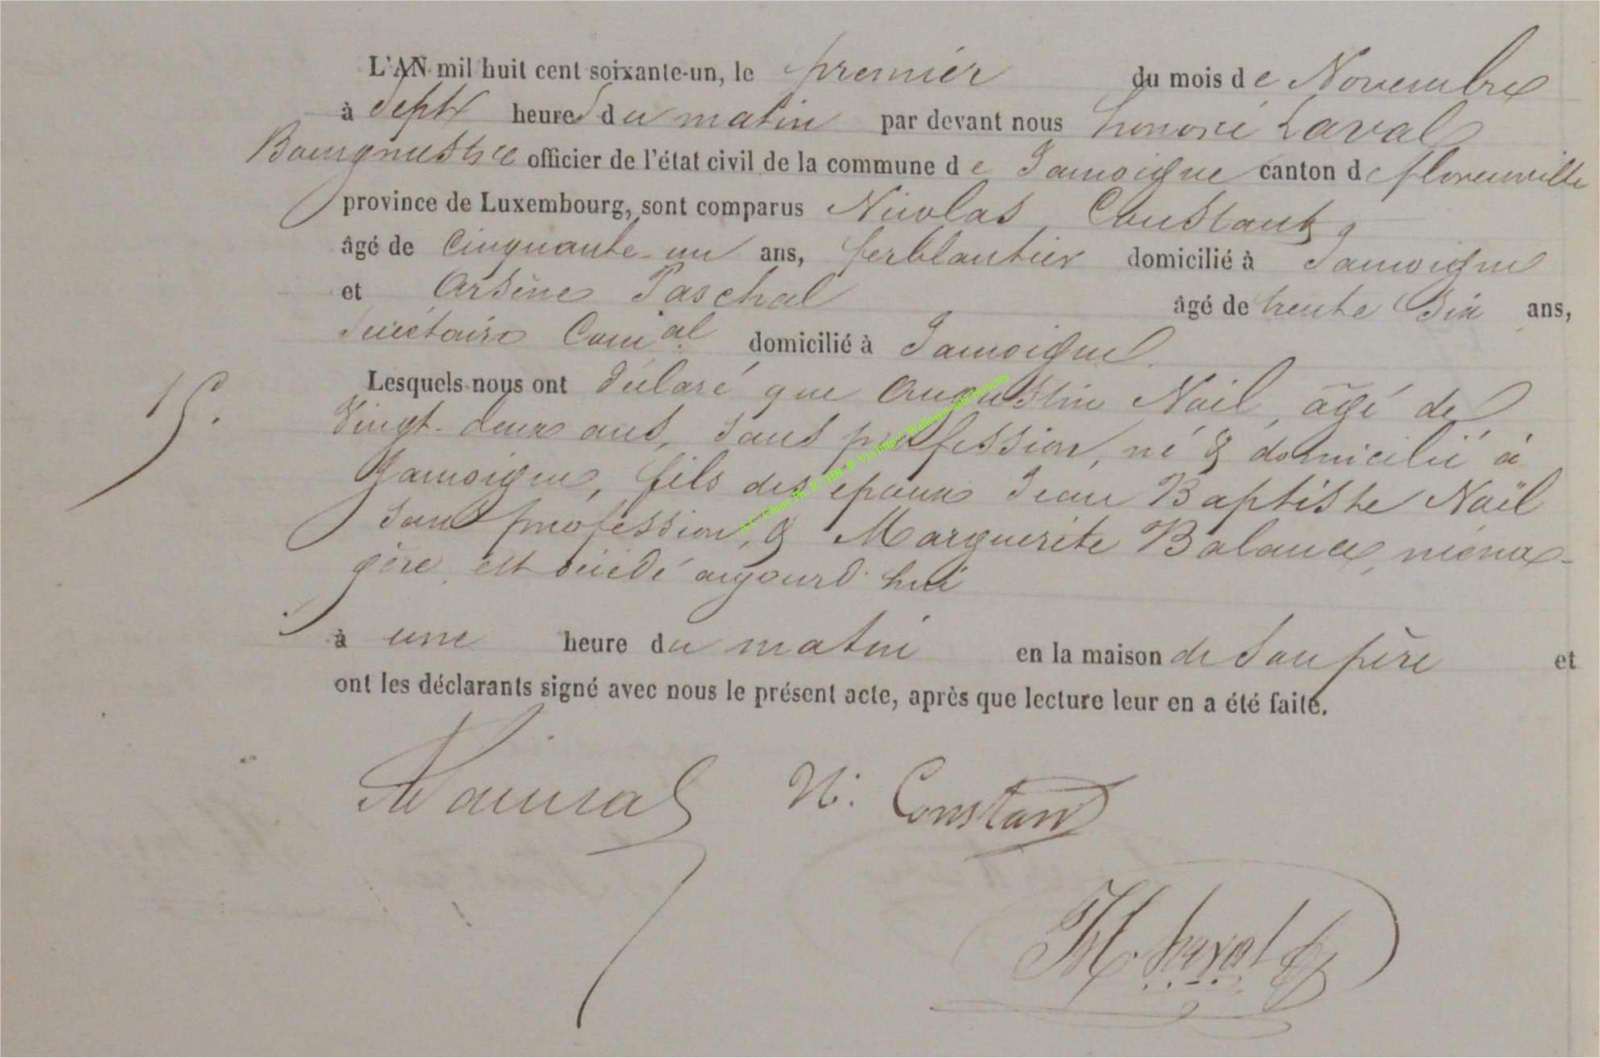 L'AN mil huit cent soixante-un, le premier du mois de Novembre
à Sept heures du matin par devant nous honoré Laval
Bourgmestre officier de l'état civil de la commune de Jamoigne canton de florenville
province de Luxembourg, sont comparus Nicolas Constant,
âgé de Cinquante-un ans, ferblantier domicilié à Jamoigne
et Arsène Paschal âgé de trente Six ans,
Secrétaire Com^al domicilié à Jamoigne
15.
Lesquels nous ont déclaré que Augustin Noël, âgé de
Vingt-deux ans, sans profession, né & domicilié à
Jamoigne, fils des époux Jean Baptiste Noël
sans profession, & Marguerite Balance, ména-
gère, est décédé aujourd'hui
à une heure du matin en la maison de Son père et
ont les déclarants signé avec nous le présent acte, après que lecture leur en a été faite.
N. Constant
H. Laval